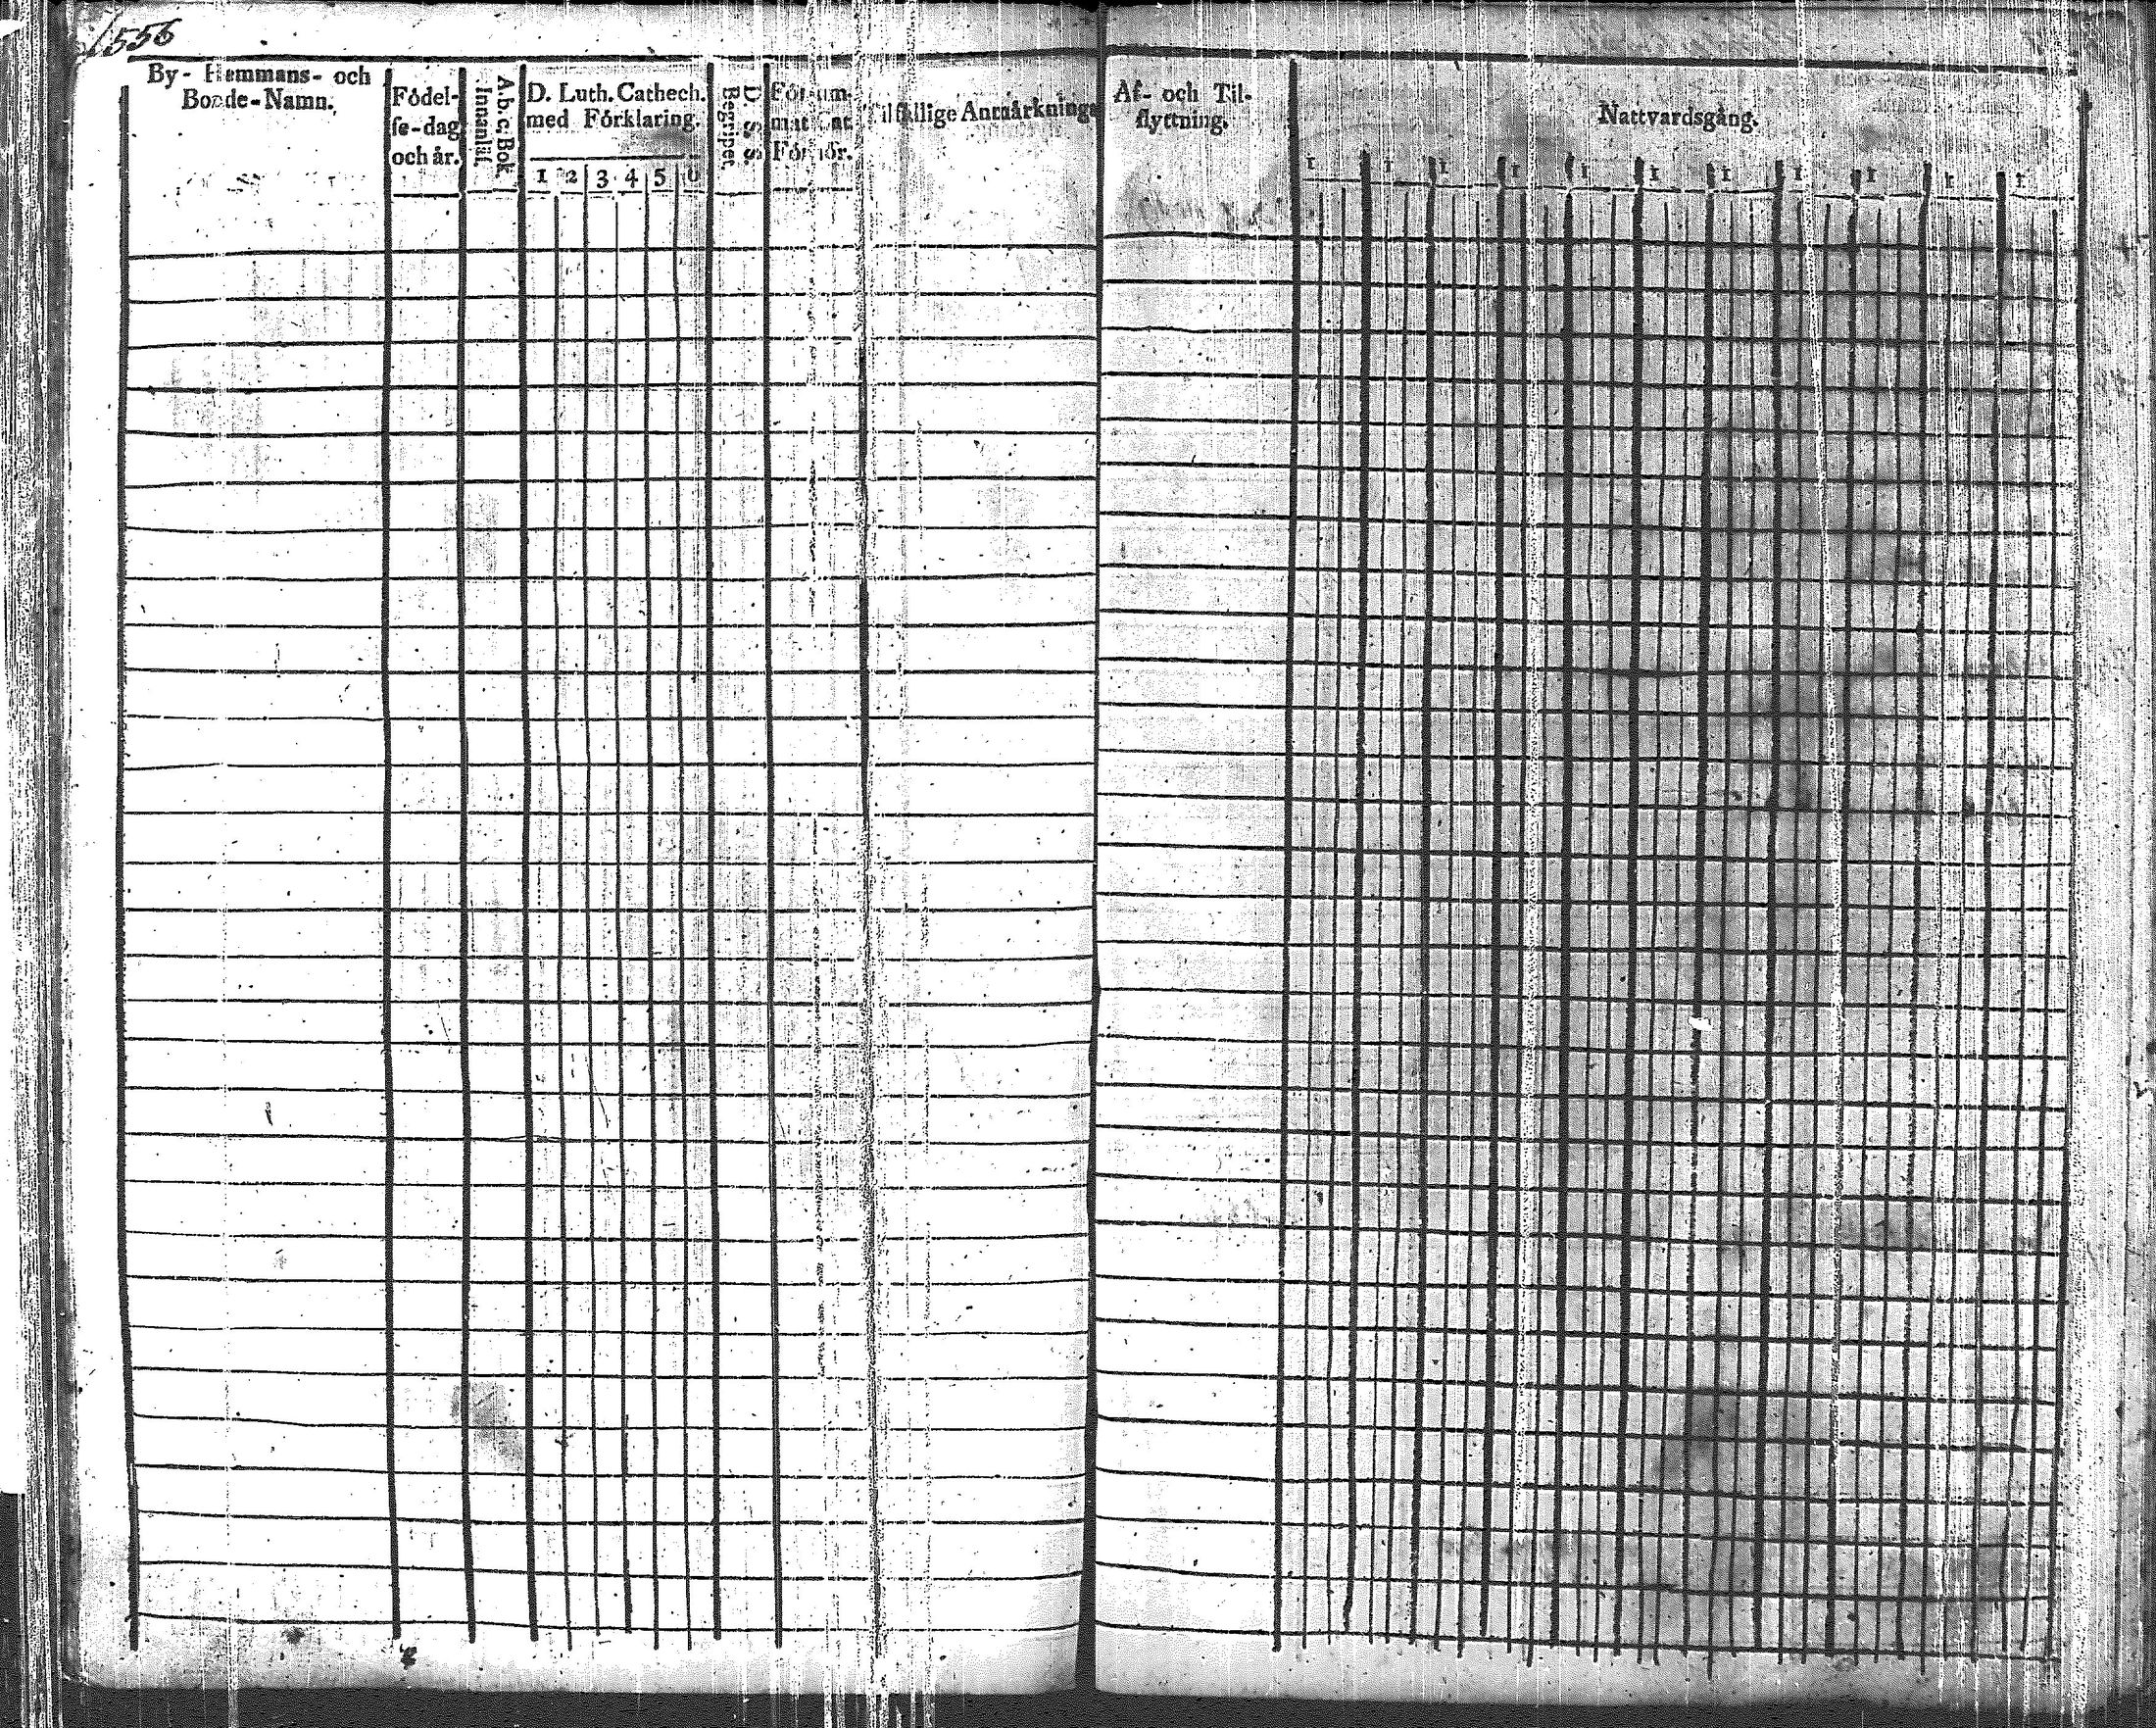 1556
By- Hemmans- och
Bonde-Namn.
Födel-
se-dag
och år.
A.b.c. Bok
Innanläs.
D. Luth. Cathech.
med Förklaring.
1 2 3 4 5 6
D. S. S.
Begripet.
Försum-
mat Cat.
Förhör.
Tilfällige Anmärkningar
Af- och Til-
flyttning.
Nattvardsgång.
1 1 1 1 1 1 1 1 1 1 1